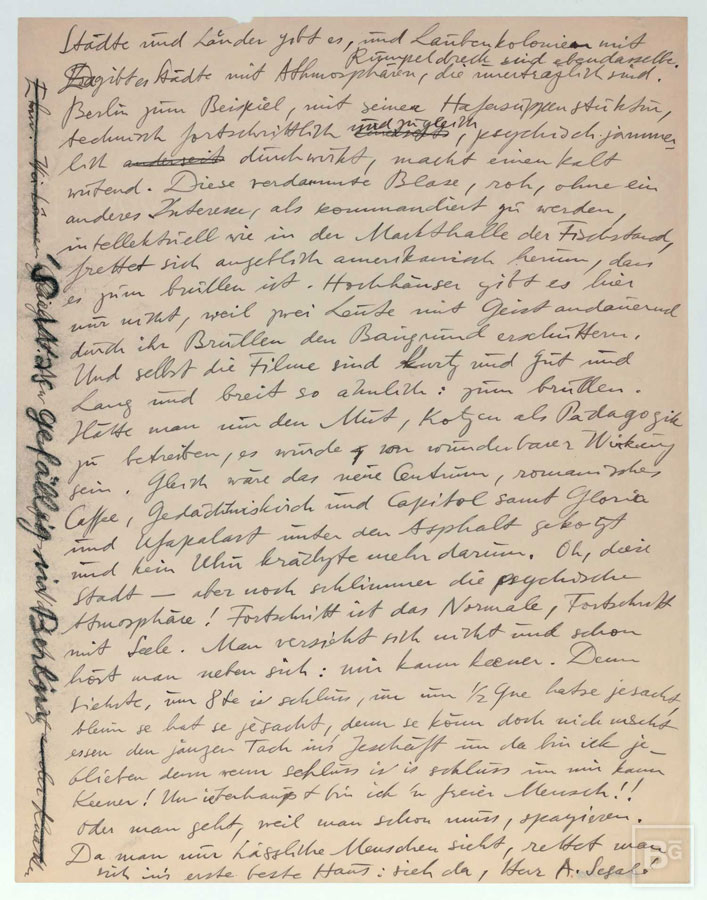 Städte und Länder gibt es, und Laubenkolonien mit
Rümpeldreck sind ebendasselbe.
Da gibt es Städte mit Athmosphären, die unerträglich sind.
Berlin zum Beispiel, mit seiner Hafersuppenstuktur,
technisch fortschrittlich und zugleich, psychisch jämmer-
lich anderseits durchwirkt, macht einen kalt
wütend. Diese verdammte Blase, roh, ohne ein
anderes Interesse, als kommandiert zu werden,
intellektuell wie in der Markthalle der Fischstand,
frettet sich angeblich amerikanisch herum, dass
es zum brüllen ist. Hochhäuser gibt es hier
nur nicht, weil zwei Leute mit Geist andauernd
durch ihr Brüllen den Baugrund erschüttern.
Und selbst die Filme sind Kurtz und Gut und
Lang und breit so ähnlich: zum brüllen.
Hätte man nur den Mut, Kotzen als Pädagogik
zu betreiben, es würde von wunderbarer Wirkung
sein. Gleich wäre das neue Centrum, romanisches
Caffee, Gedächtniskirch und Capitol samt Gloria
und Ufapalast unter den Asphalt gekotzt
und kein Uhu krächzte mehr darum. Oh, diese
Stadt — aber noch schlimmer die psychische
Atmosphäre! Fortschritt ist das Normale, Fortschritt
mit Seele. Man versieht sich nicht und schon
hört man neben sich: mir kann keener. Denn
siehste, um 8te is schluss, un um ½ 9ne hatse jesacht,
bleim se hat se jesacht, denn se könn doch nich
essen den janzen Tach ins Jeschäft un da bin ick je-
blieben denn wenn schluss is is schluss un mir kann
Keener! Un überhaupt bin ich 'n freier Mensch!!
Oder man geht, weil man schon muss, spazieren.
Da man nur hässliche Menschen sieht, rettet man
sich ins erste beste Haus: sieh da, Herr A. Segal
gefällig in Berlin
BG